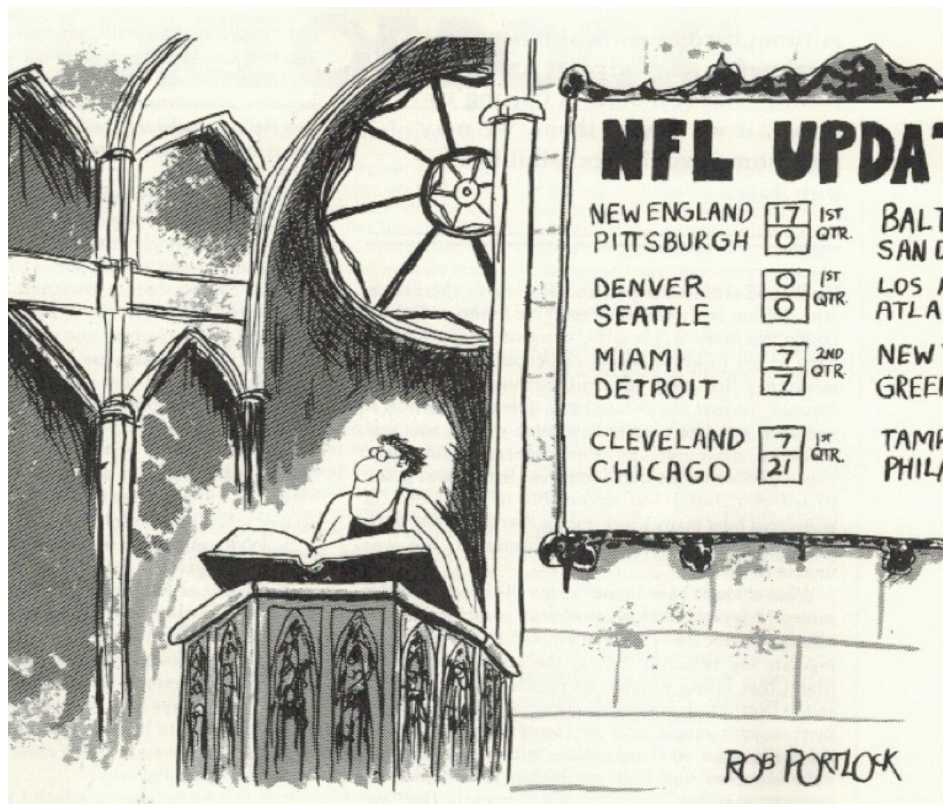 NFL UPDAT
NEW ENGLAND 17 1ST
PITTSBURGH 0 QTR.
DENVER 0 1ST
SEATTLE 0 QTR.
MIAMI 7 2ND
DETROIT 7 QTR.
CLEVELAND 7 1ST
CHICAGO 21 QTR.
BALT
SAN D
LOS A
ATLA
NEW
GREE
TAMP
PHILA
ROB PORTLOCK